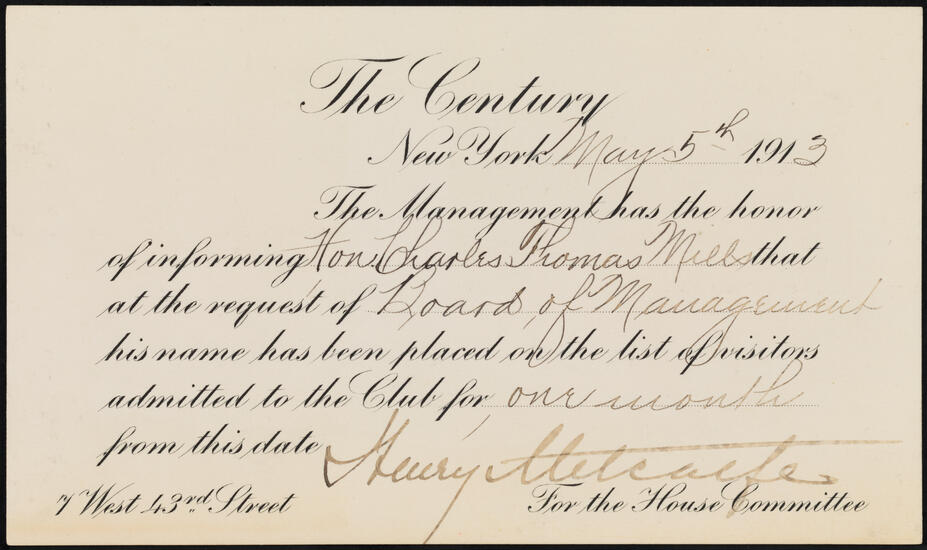 The Century
New York May 5th 1913
The Management has the honor
of informing Hon. Charles Thomas Mills that
at the request of Board of Management
his name has been placed on the list of visitors
admitted to the Club for one month
from this date
Henry Metcalfe
7 West 43rd Street
For the House Committee